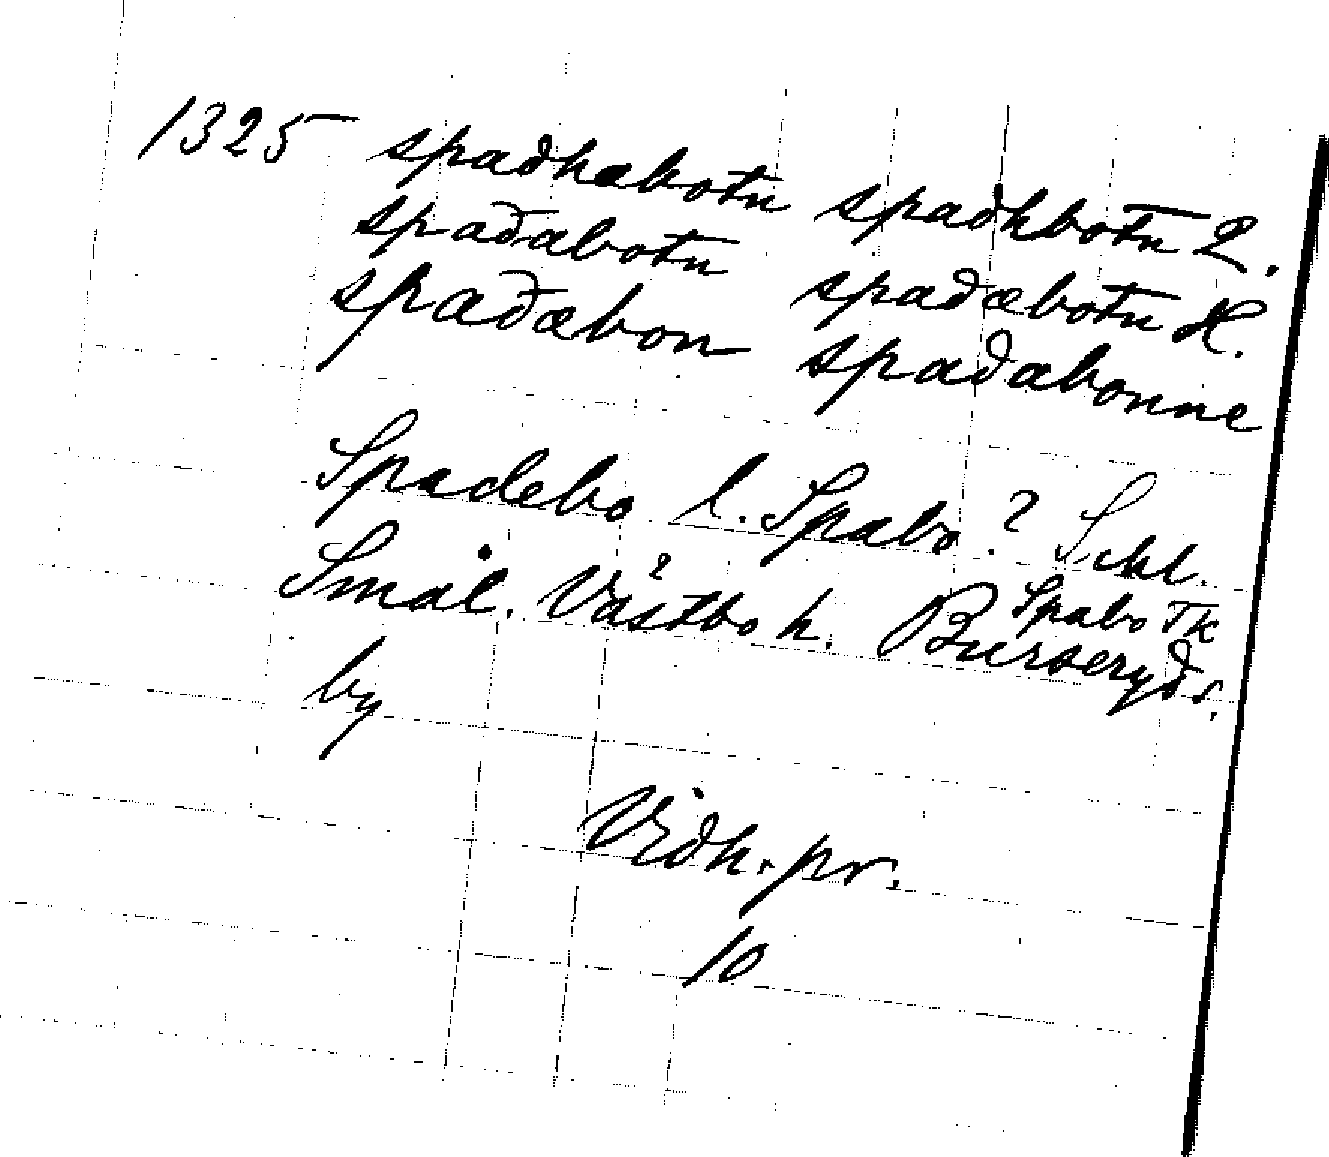 1325 spadhabotu spadhbotu 2.
spaðabotu spaðæbotu H.
spaðæbon spaðabonne
Spadebo l. Spabo? Schl.
Smål. Västbo h. ? Burseryds.
Spabo TK
by
Vidh. pr.
10